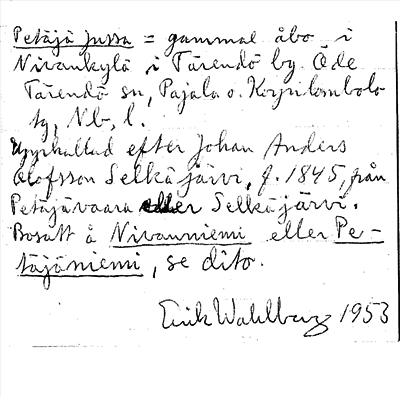 Petäjä Jussa = gammal åbo i
Nivankylä i Tärendö by. Öde
Tärendö sn, Pajala o. Korpilombolo
tg, Nb, l.
Uppkallad efter Johan Anders
Olofsson Selkäjärvi, f. 1845, från
Petäjävaara eller Selkäjärvi.
Bosatt å Nivanniemi eller Pe-
täjäniemi, se dito.
Erik Wahlberg 1953